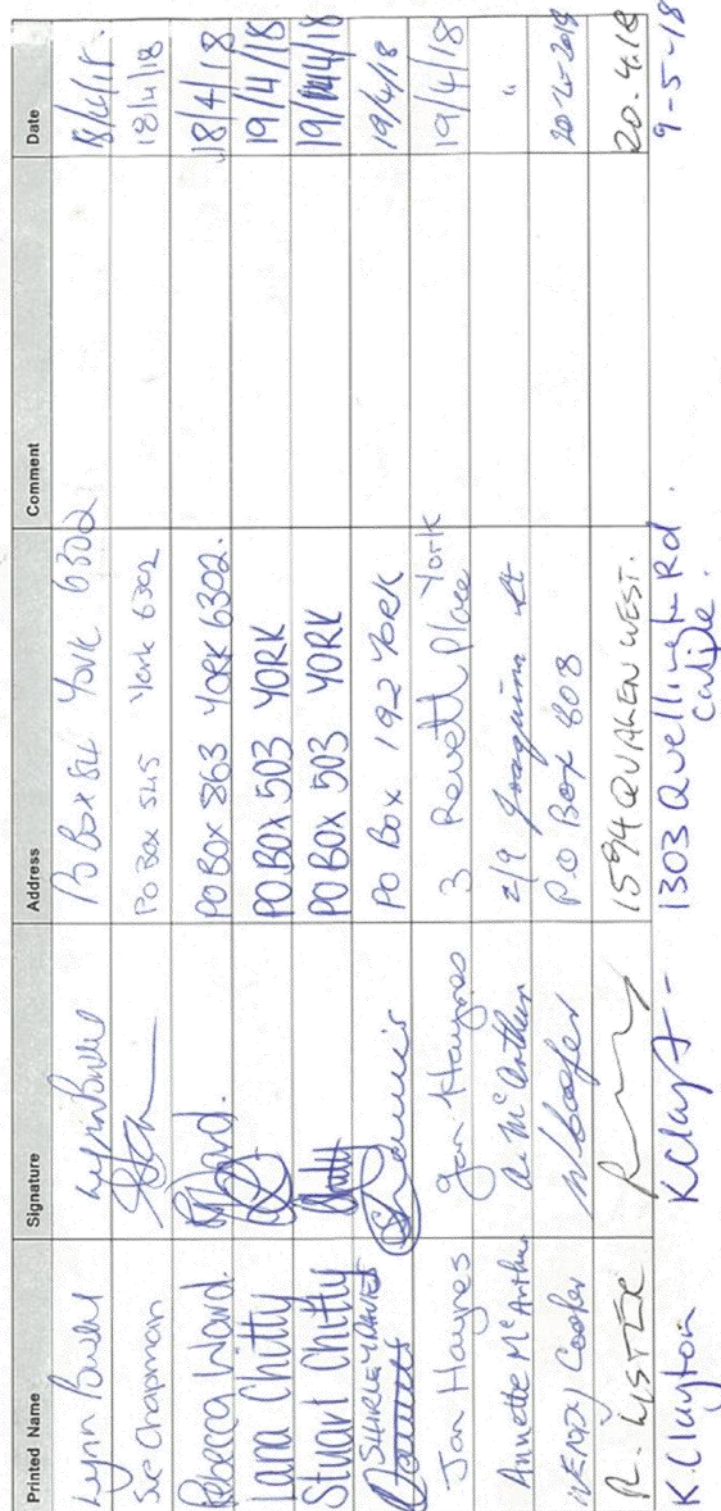 Printed Name Signature Address Comment Date
Lynn Lynn PO Box York 6302 18/4/18.
Sue Chapman PO Box 545 York 6302 18/4/18
Rebecca Ward. RWard. PO BOX 863 YORK 6302. 18/4/18
Lana Chitty PO BOX 503 YORK 19/4/18
Stuart Chitty PO BOX 503 YORK 19/4/18
SHIRLEY DAVIES SDavies PO Box 192 YORK 19/4/18
Jan Haynes Jan Haynes 3 Revett Place York 19/4/18
Annette McArthur A. McArthur 2/9 Joaquina St "
WENDY Cooper W Cooper P.O Box 808
R. LISTER 1594 QUALEN WEST. 20.4.18
K. Clayton KClayt- 1303 Quellington Rd. 9-5-18